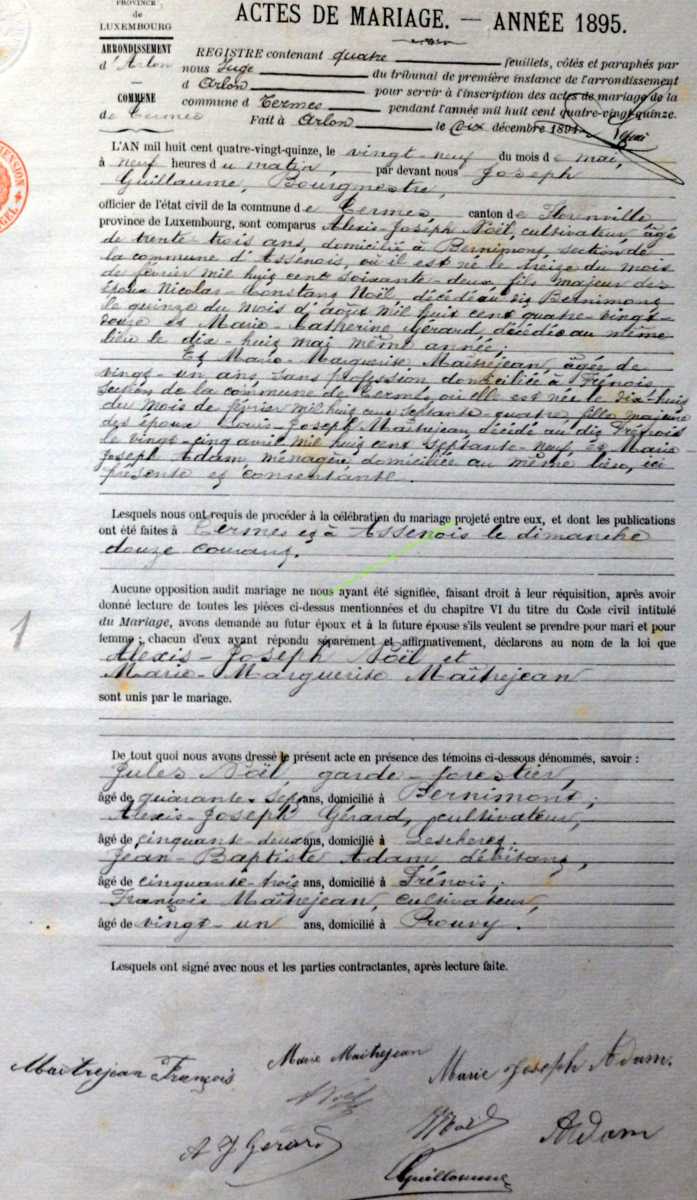 PROVINCE
de
LUXEMBOURG
ARRONDISSEMENT
d'Arlon
COMMUNE
de Termes
ACTES DE MARIAGE. — ANNÉE 1895.
REGISTRE contenant quatre feuillets, côtés et paraphés par
nous Juge du tribunal de première instance de l'arrondissement
d Arlon pour servir à l'inscription des actes de mariage de la
commune d Termes pendant l'année mil huit cent quatre-vingt-quinze.
Fait à Arlon le dix décembre 1894
L'AN mil huit cent quatre-vingt-quinze, le vingt-neuf du mois de mai,
à neuf heures du matin, par devant nous Joseph
Guillaume, Bourgmestre,
officier de l'état civil de la commune de Termes, canton de Florenville
province de Luxembourg, sont comparus Alexis-Joseph Noël, cultivateur, âgé
de trente-trois ans, domicilié à Bernimont, section de
la commune d'Assenois, où il est né le treize du mois
de février mil huit cent soixante-deux fils majeur des
époux Nicolas-Constant Noël, décédé au dit Bernimont
le quinze du mois d'août mil huit cent quatre-vingt-
douze et Marie-Catherine Gérard décédée au même
lieu le dix-huit mai même année;
Et Marie-Marguerite Maîtrejean âgée de
vingt-un ans, sans profession, domiciliée à Frénois,
section de la commune de Termes, où elle est née le dix-huit
du mois de février mil huit cent septante-quatre, fille majeure
des époux Louis-Joseph Maîtrejean, décédé au dit Frénois
le vingt-cinq avril mil huit cent septante-neuf, et Marie-
Joseph Adam, ménagère, domiciliée au même lieu, ici
présente et consentante.
Lesquels nous ont requis de procéder à la célébration du mariage projeté entre eux, et dont les publications
ont été faites à Termes et à Assenois le dimanche
douze courant.
Aucune opposition audit mariage ne nous ayant été signifiée, faisant droit à leur réquisition, après avoir
donné lecture de toutes les pièces ci-dessus mentionnées et du chapitre VI du titre du Code civil intitulé
du Mariage, avons demandé au futur époux et à la future épouse s'ils veulent se prendre pour mari et pour
femme ; chacun d'eux ayant répondu séparément et affirmativement, déclarons au nom de la loi que
Alexis-Joseph Noël et
Marie-Marguerite Maîtrejean
sont unis par le mariage.
De tout quoi nous avons dressé le présent acte en présence des témoins ci-dessous dénommés, savoir :
Jules Noël, garde-forestier,
âgé de quarante-sept ans, domicilié à Bernimont;
Alexis-Joseph Gérard, cultivateur,
âgé de cinquante-deux ans, domicilié à Lescheret,
Jean-Baptiste Adam, débitant,
âgé de cinquante-trois ans, domicilié à Frénois;
François Maîtrejean, cultivateur,
âgé de vingt-un ans, domicilié à Prouvy.
Lesquels ont signé avec nous et les parties contractantes, après lecture faite.
1
Maîtrejean François
Marie Maitrejean
Marie Joseph Adam.
A Noël
A J Gérard
Noël
Adam
Guillaume